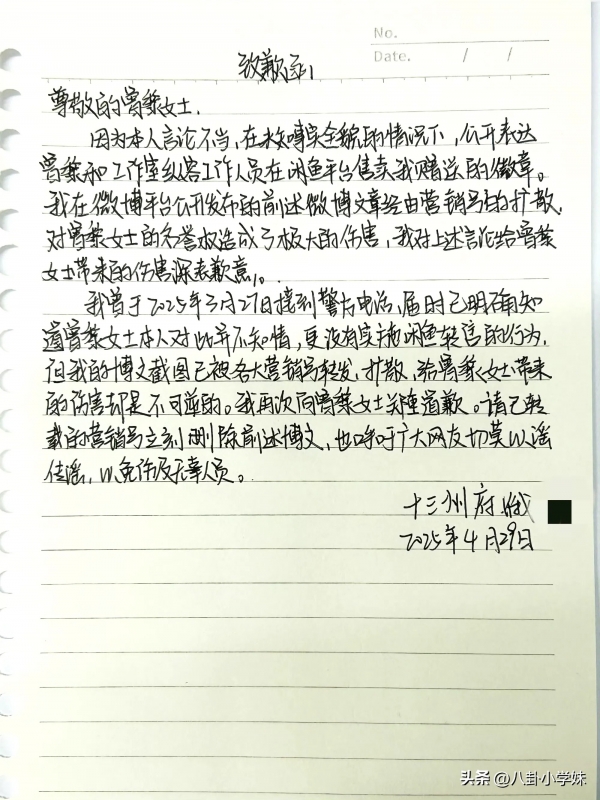 No.
Date. / /
致歉函
尊敬的曾黎女士.
因为本人言论不当,在未知晓实全貌的情况下,公开表达
曾黎和工作室纵容工作人员在闲鱼平台售卖我赠送的徽章。
我在微博平台公开发布的前述微博文章经由营销号的扩散,
对曾黎女士的名誉权造成了极大的伤害,我对上述言论给曾黎
女士带来的伤害深表歉意。
我曾于2025年3月27日接到警方电话,届时已明确知
道曾黎女士本人对此并不知情,更没有实施闲鱼转售的行为,
但我的博文截图已被各大营销号转发、扩散,给曾黎女士带来
的伤害却是不可逆的。我再次向曾黎女士郑重道歉。请已转
载的营销号立刻删除前述博文,也呼吁广大网友切莫以谣
传谣,以免伤及无辜人员。
十三州府
2025年4月29日
头条 @八卦小学妹